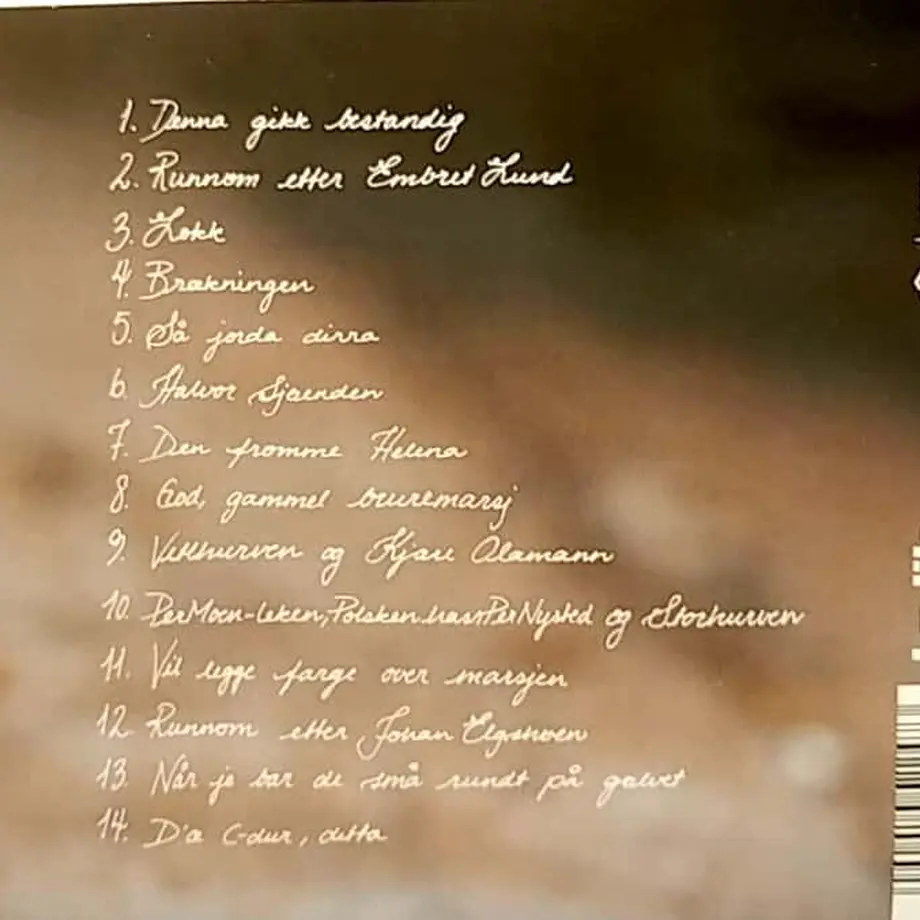 1. Denna gikk bestandig
2. Runnom etter Embret Lund
3. Lokk
4. Brækningen
5. Så jorda dirra
6. Halvor Sjøenden
7. Den fromme Helena
8. God, gammel bruremarsj
9. Vetlhurven og Kjare Olamann
10. Per Moen-leken, Polsken hass Per Nysted og Storhurven
11. Vil legge farge over marsjen
12. Runnom etter Johan Elgshøen
13. Når je bar de små rundt på golvet
14. D'æ C-dur, detta